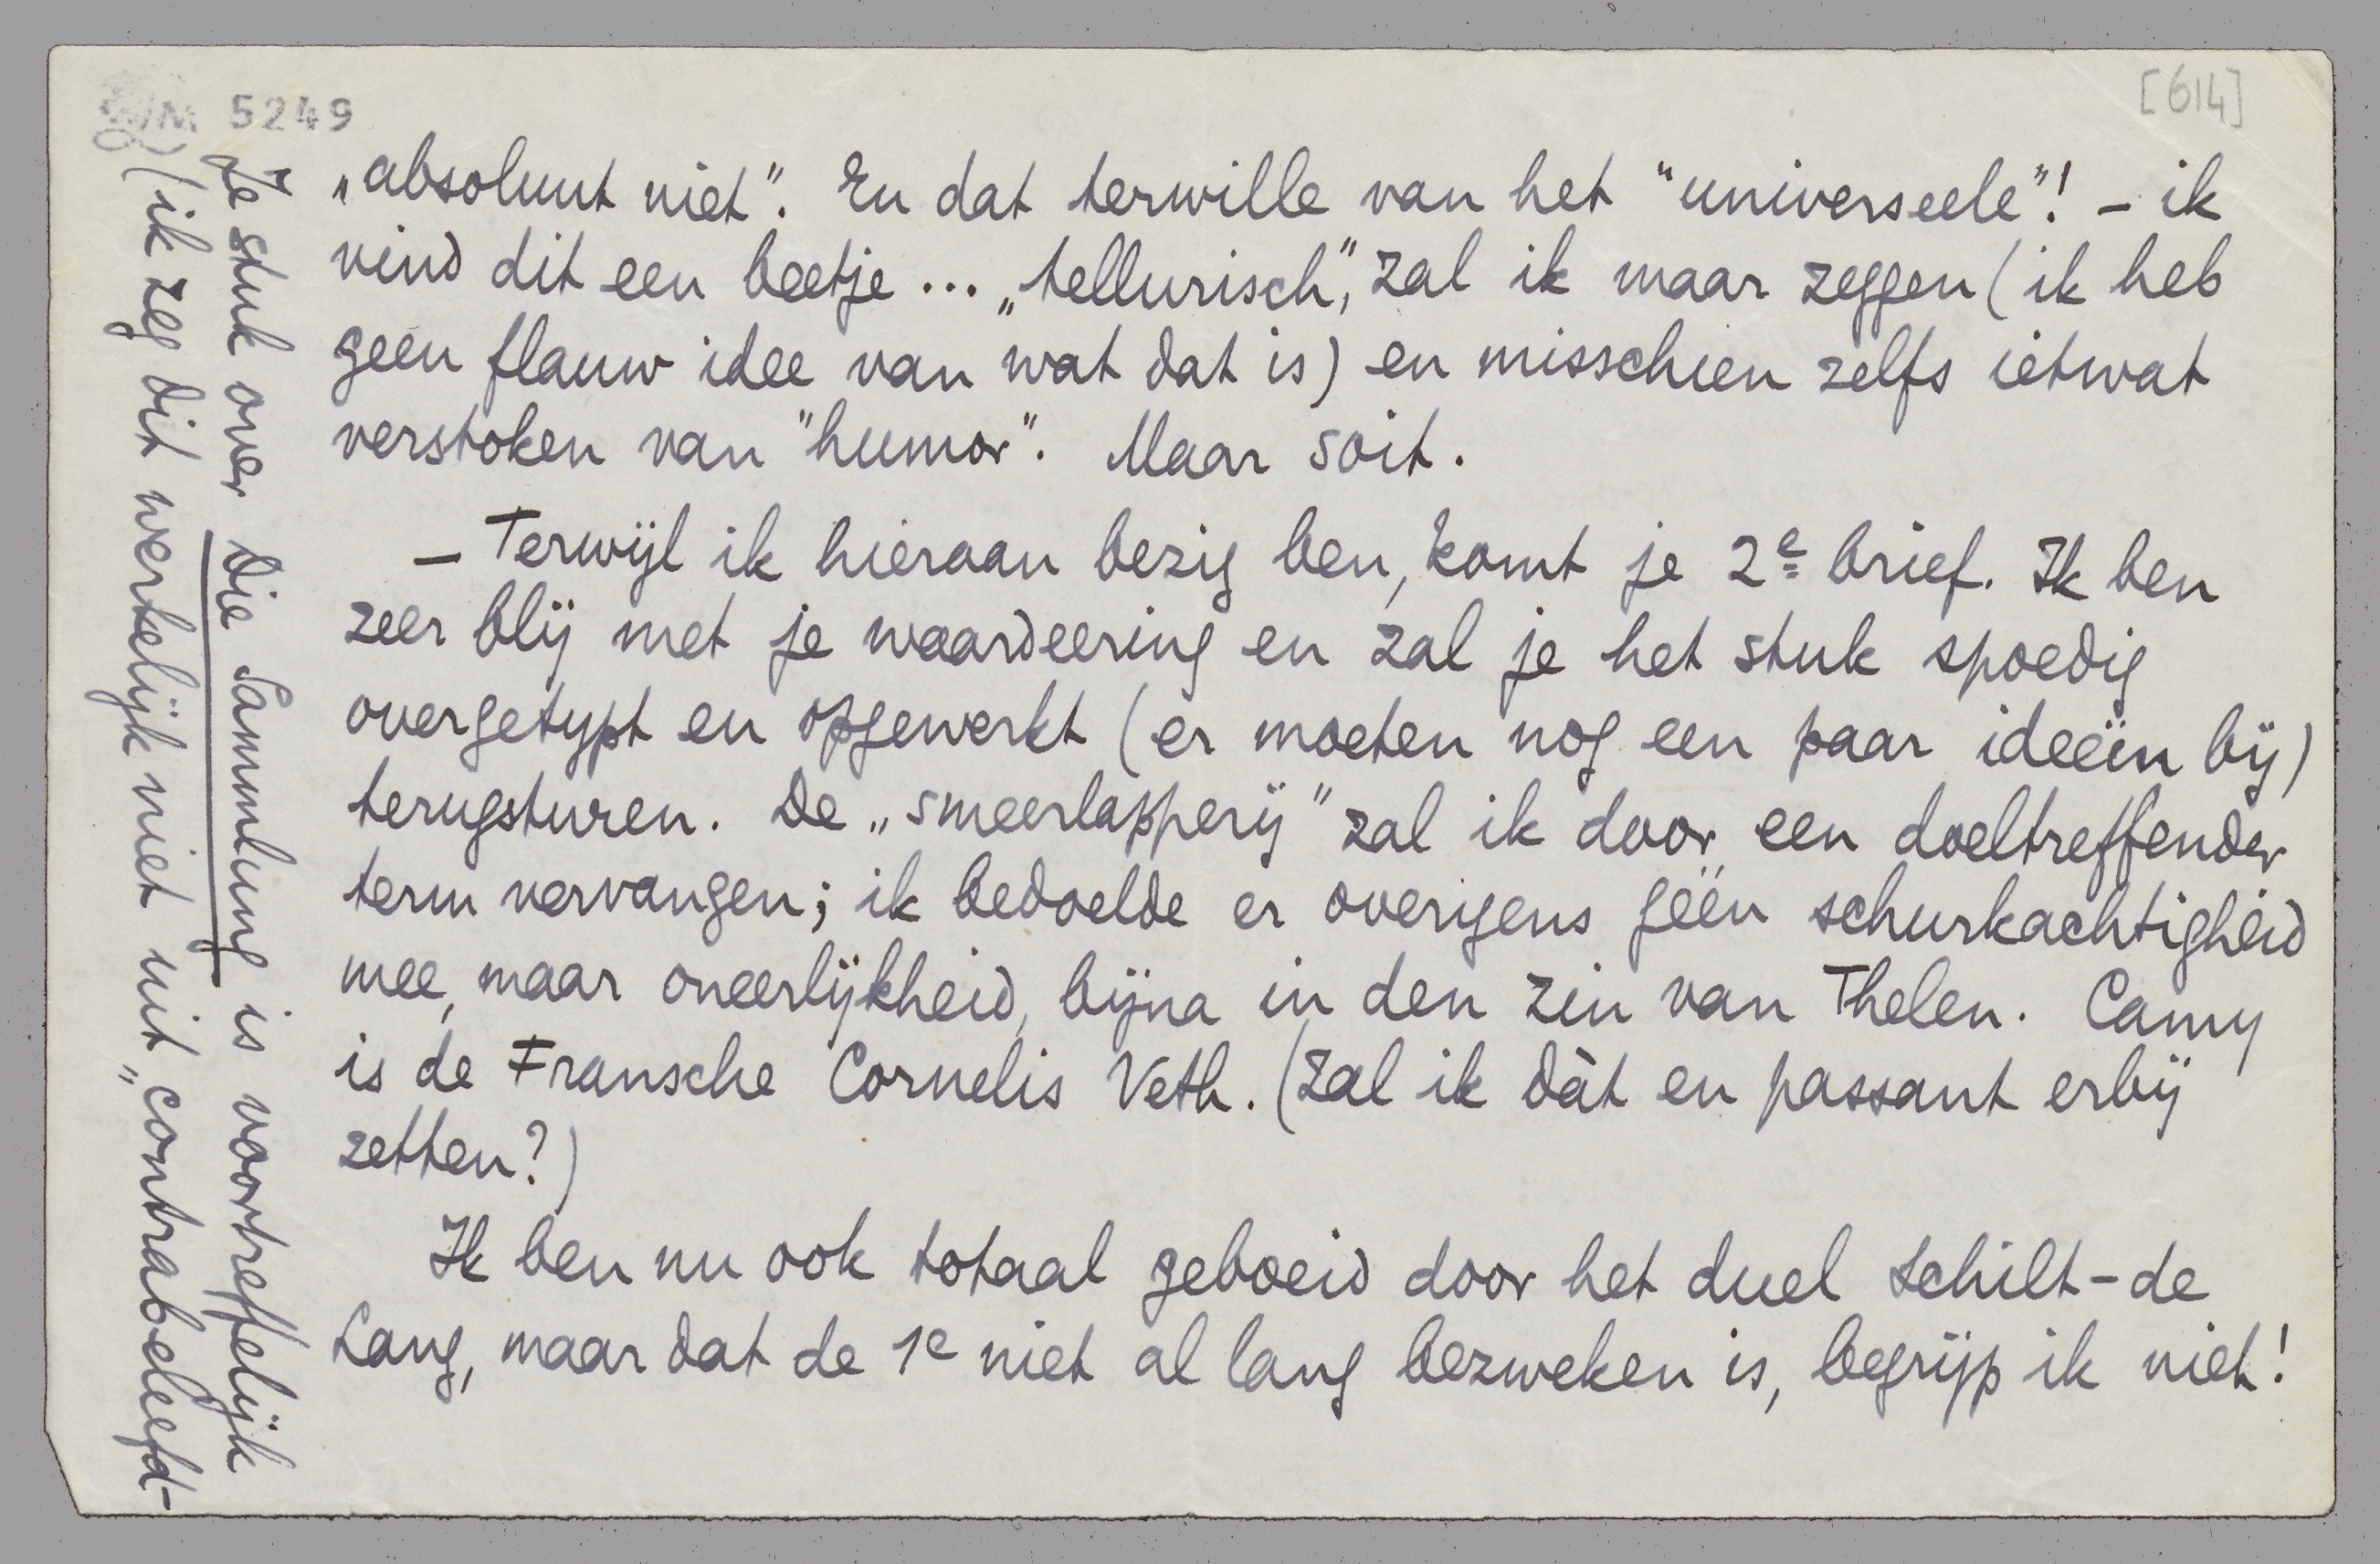 5249
[614]
„absoluut niet”. En dat terwille van het “universeele”! – ik
vind dit een beetje ... „tellurisch”, zal ik maar zeggen (ik heb
geen flauw idee van wat dat is) en misschien zelfs ietwat
verstoken van “humor”. Maar soit.
– Terwijl ik hieraan bezig ben, komt je 2e brief. Ik ben
zeer blij met je waardeering en zal je het stuk spoedig
overgetypt en opgewerkt (er moeten nog een paar ideeën bij)
terugsturen. De „smeerlapperij” zal ik door een doeltreffender
term vervangen; ik bedoelde er overigens géén schurkachtigheid
mee, maar oneerlijkheid, bijna in den zin van Thelen. Camy
is de Fransche Cornelis Veth. (Zal ik dàt en passant erbij
zetten?)
Ik ben nu ook totaal geboeid door het duel Schilt–de
Lang, maar dat de 1e niet al lang bezweken is, begrijp ik niet!
Je stuk over Die Sammlung is voortreffelijk
(ik zeg dit werkelijk niet uit „contrabeleefd-